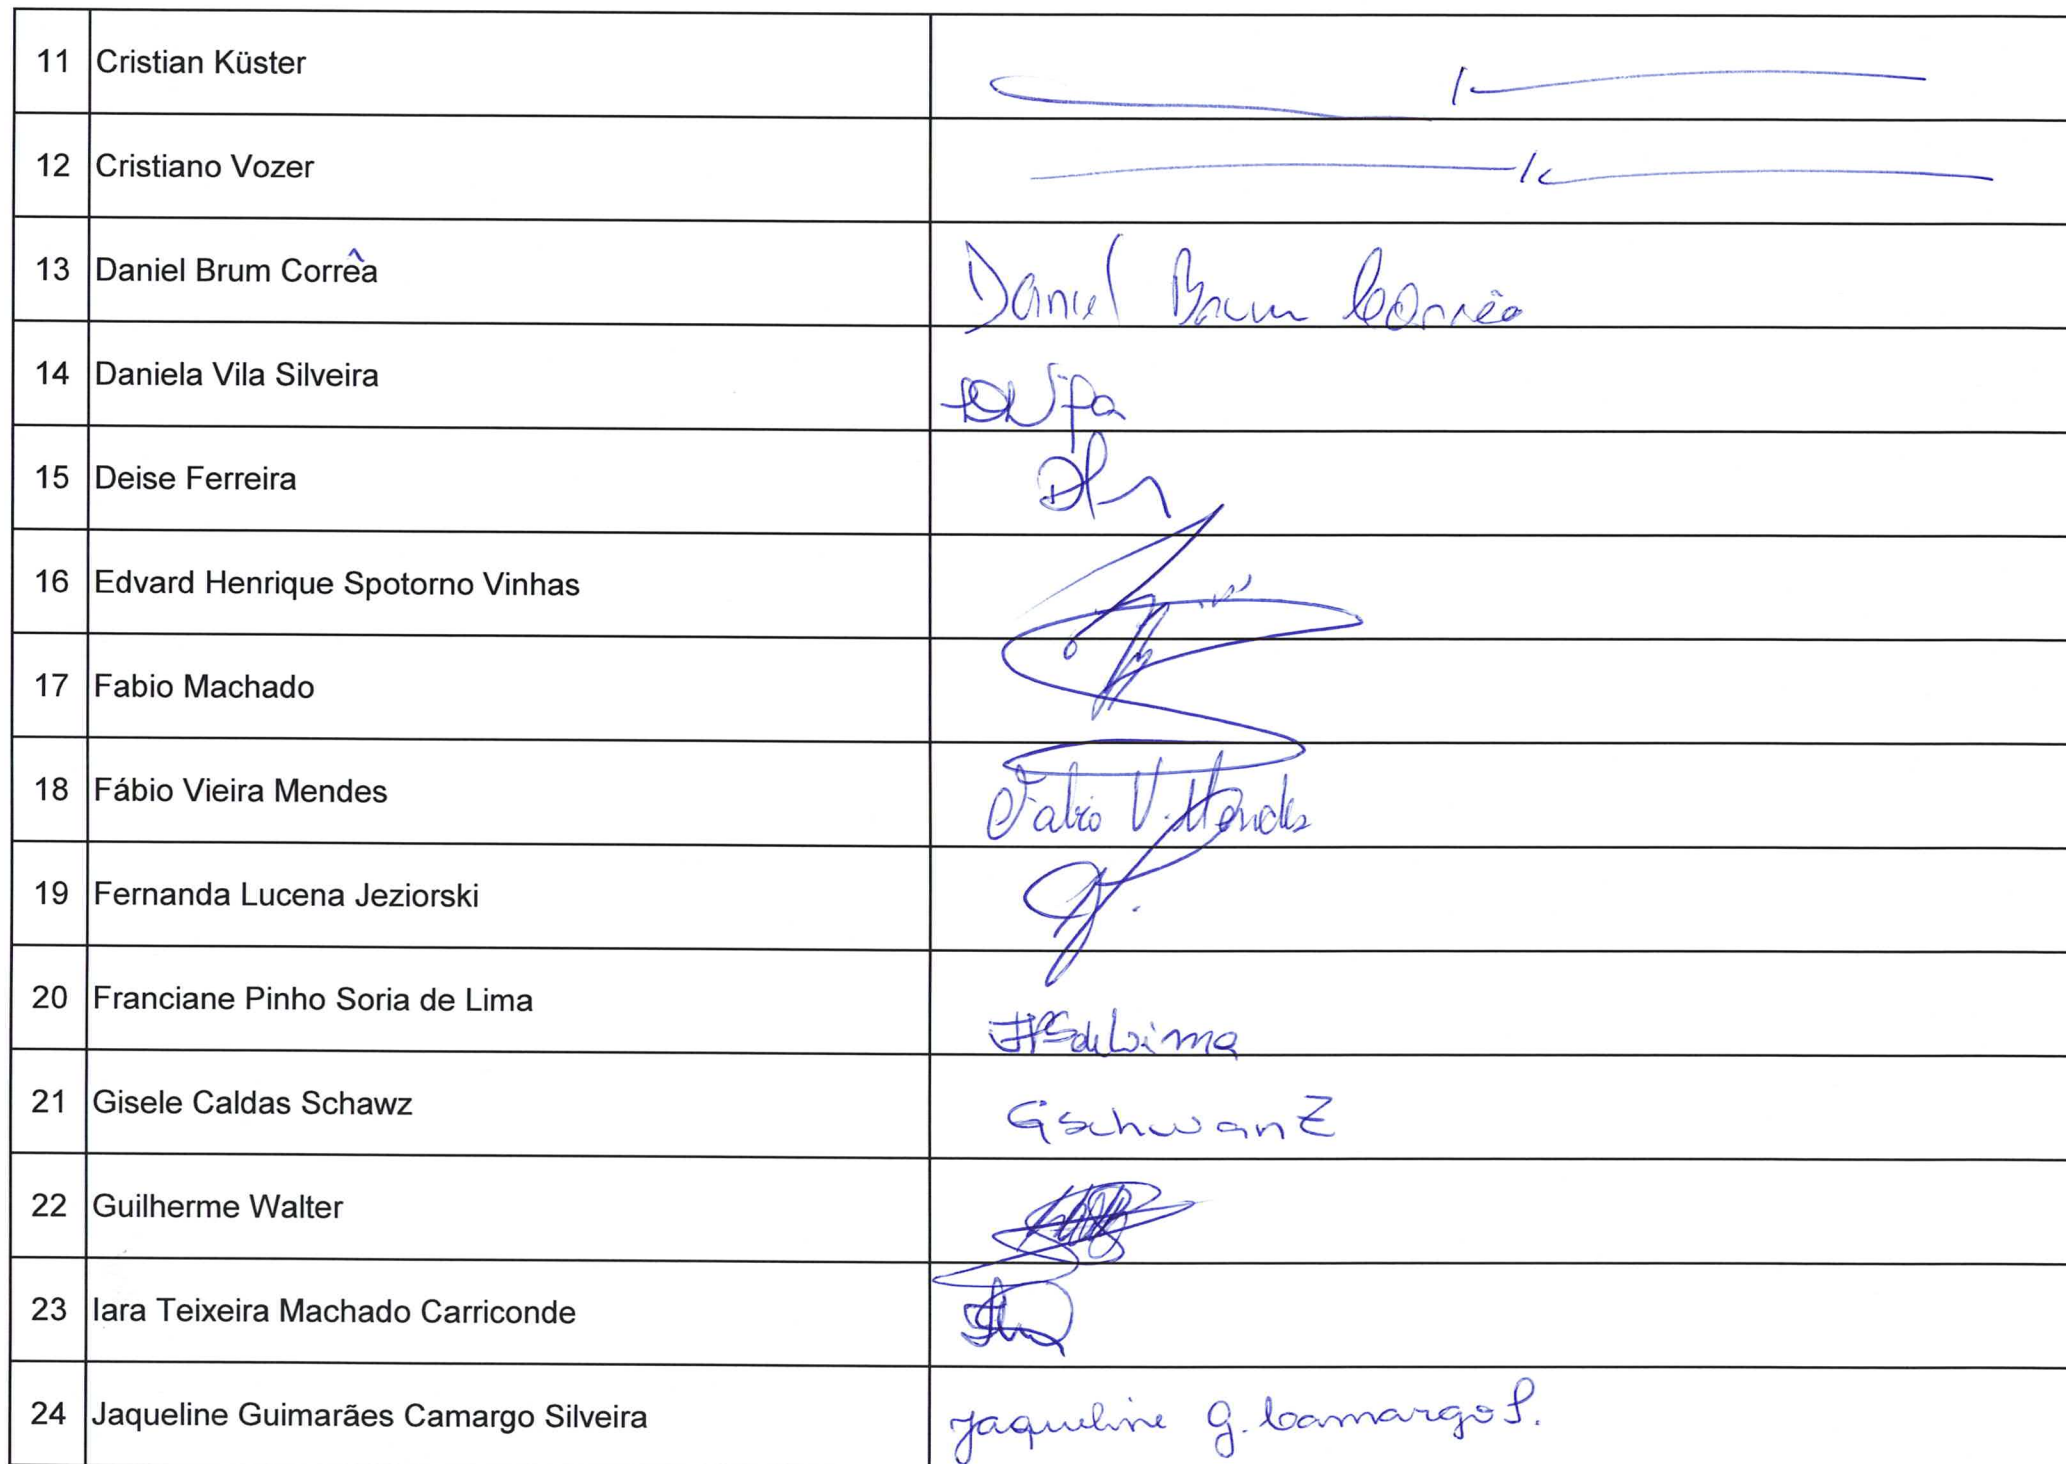 11 Cristian Küster
12 Cristiano Vozer
13 Daniel Brum Corrêa Daniel Brum Corrêa
14 Daniela Vila Silveira
15 Deise Ferreira
16 Edvard Henrique Spotorno Vinhas
17 Fabio Machado
18 Fábio Vieira Mendes Fabio V. Mendes
19 Fernanda Lucena Jeziorski
20 Franciane Pinho Soria de Lima FPSdeLima
21 Gisele Caldas Schawz GSchwanz
22 Guilherme Walter
23 Iara Teixeira Machado Carriconde
24 Jaqueline Guimarães Camargo Silveira Jaqueline G. Camargo S.